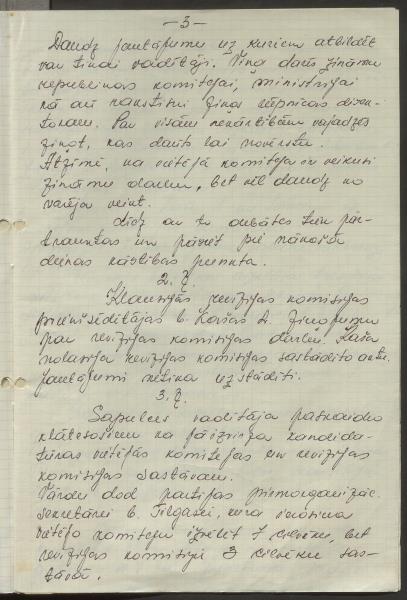 — 3 —
Daudz jautājumu uz kuriem atbildēt
var tikai vadītāji. Viņa darīs zināmu
republikas komitejai, ministrijai
kā arī rakstīni ziņos rūpnīcas direk-
toram. Par visām nekārtībām vajadzēs
ziņot, kas darīts lai novērstu.
Atzīmē, ka vietējā komiteja ir veikusi
zināmu darbu, bet vēl daudz ko
varēja veikt.
Līdz ar to debates tiek pār-
trauktas un pāriet pie nākošā
dienas kārtības punkta.
2. §.
Klausījās revīzijas komisijas
priekšsēdētājas b. Koršas A. ziņojumu
par revīzijas komisijas darbu. Kaira
nolasīja revīzijas komisijas sastādīto aktu.
Jautājumi netika uzstādīti.
3. §.
Sapulces vadītāja paskaidro
klātesošiem ka jāizvirza kandida-
tūras vietējās komitejas un revīzijas
komisijas sastāvam.
Vārdu dod partijas pirmorganizāc.
sekretārei b. Filgasei, kura ierosina
vietējo komiteju izvēlēt 7 cilvēku, bet
revīzijas komisiju 3 cilvēku sas-
tāvā.